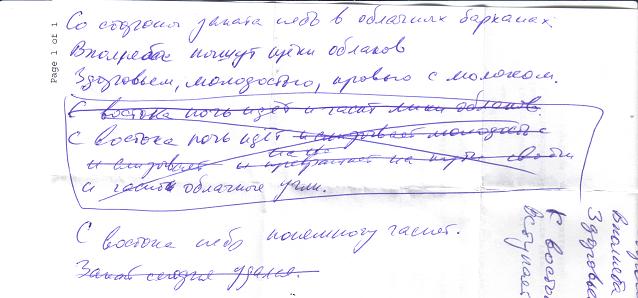 Со стороны заката небо в облачных барханах.
Вполнеба пышут щёки облаков
Здоровьем, молодостью, кровью с молоком.
С востока ночь идёт и гасит лики облаков.
С востока ночь идёт и смывает молодость с
и смывает и превращает на пути
и гасит облачные угли.
С востока небо понемногу гаснет.
Закат сегодня удался.
Page 1 of 1
Вполнеба
Здоровье
С восто
Вступает